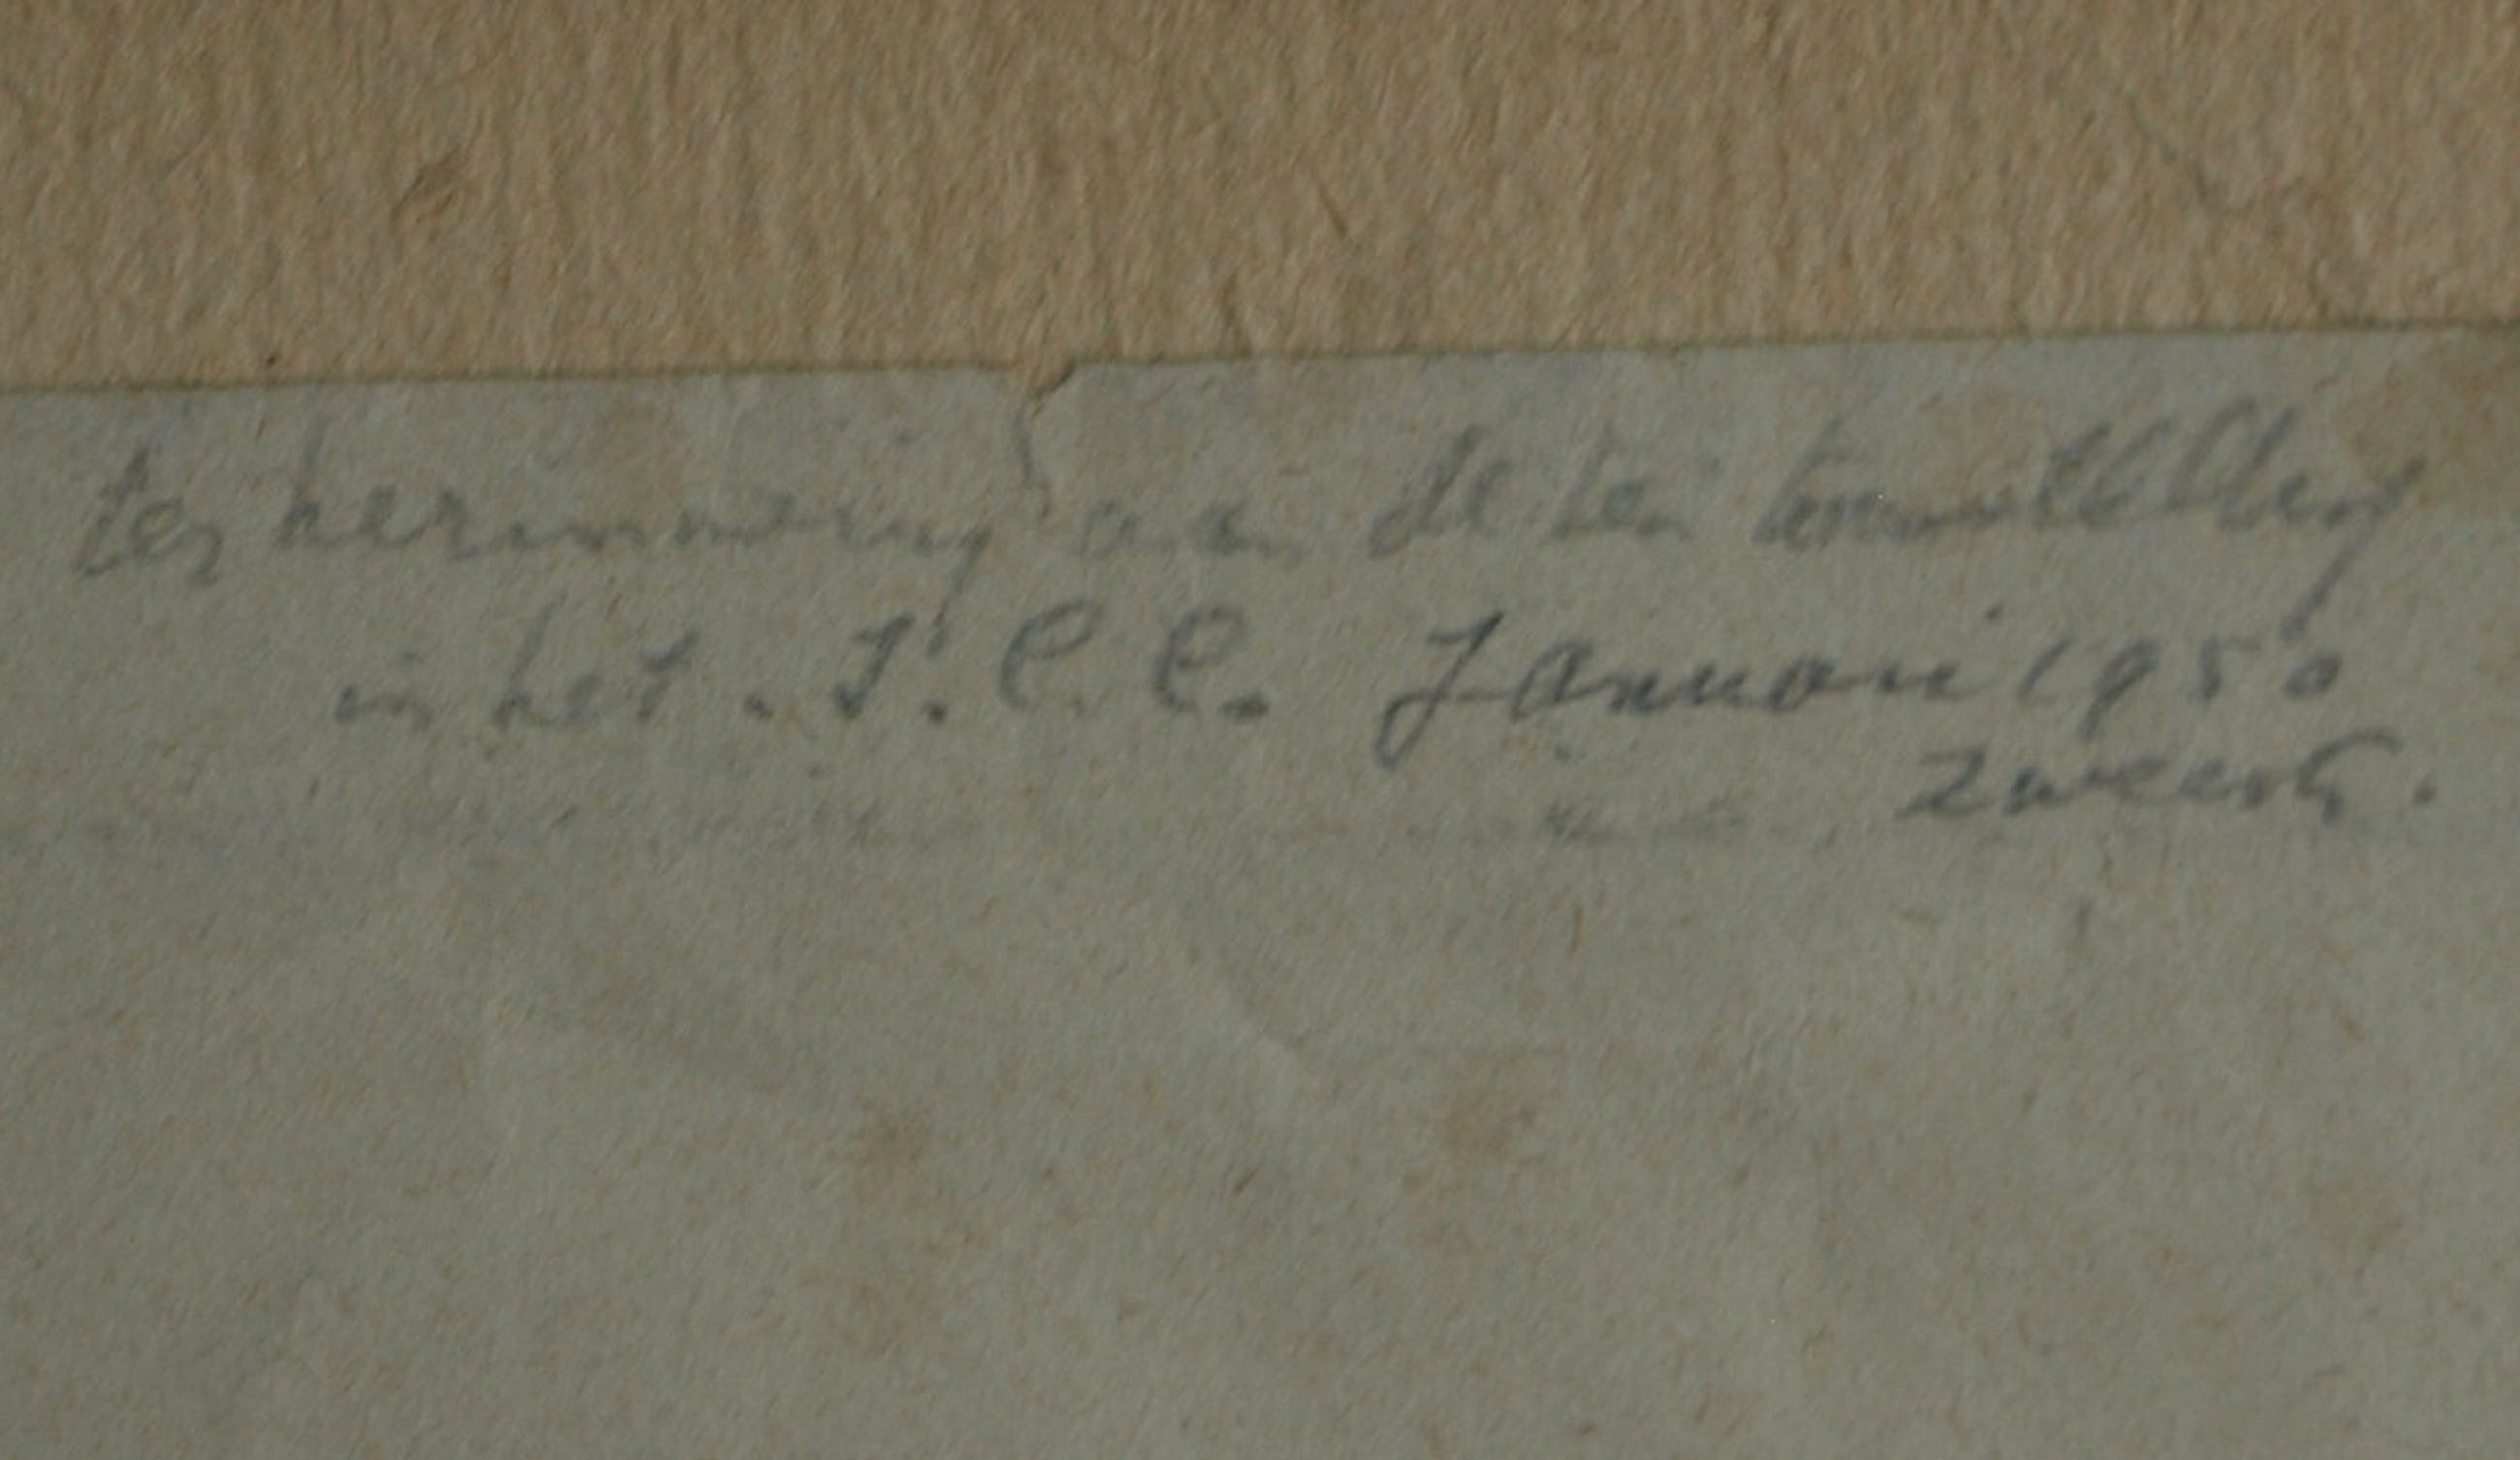 ter herinnering aan de tentoonstelling
in het. I. C. C. Januari 1950
Zweerts.